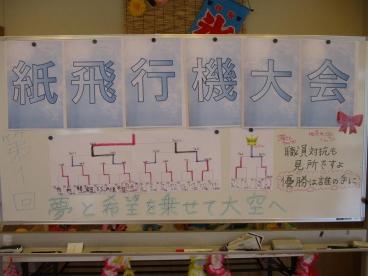 紙飛行機大会
第1回
職員対抗も
見所ですよ
優勝は誰の手に
夢と希望を乗せて大空へ